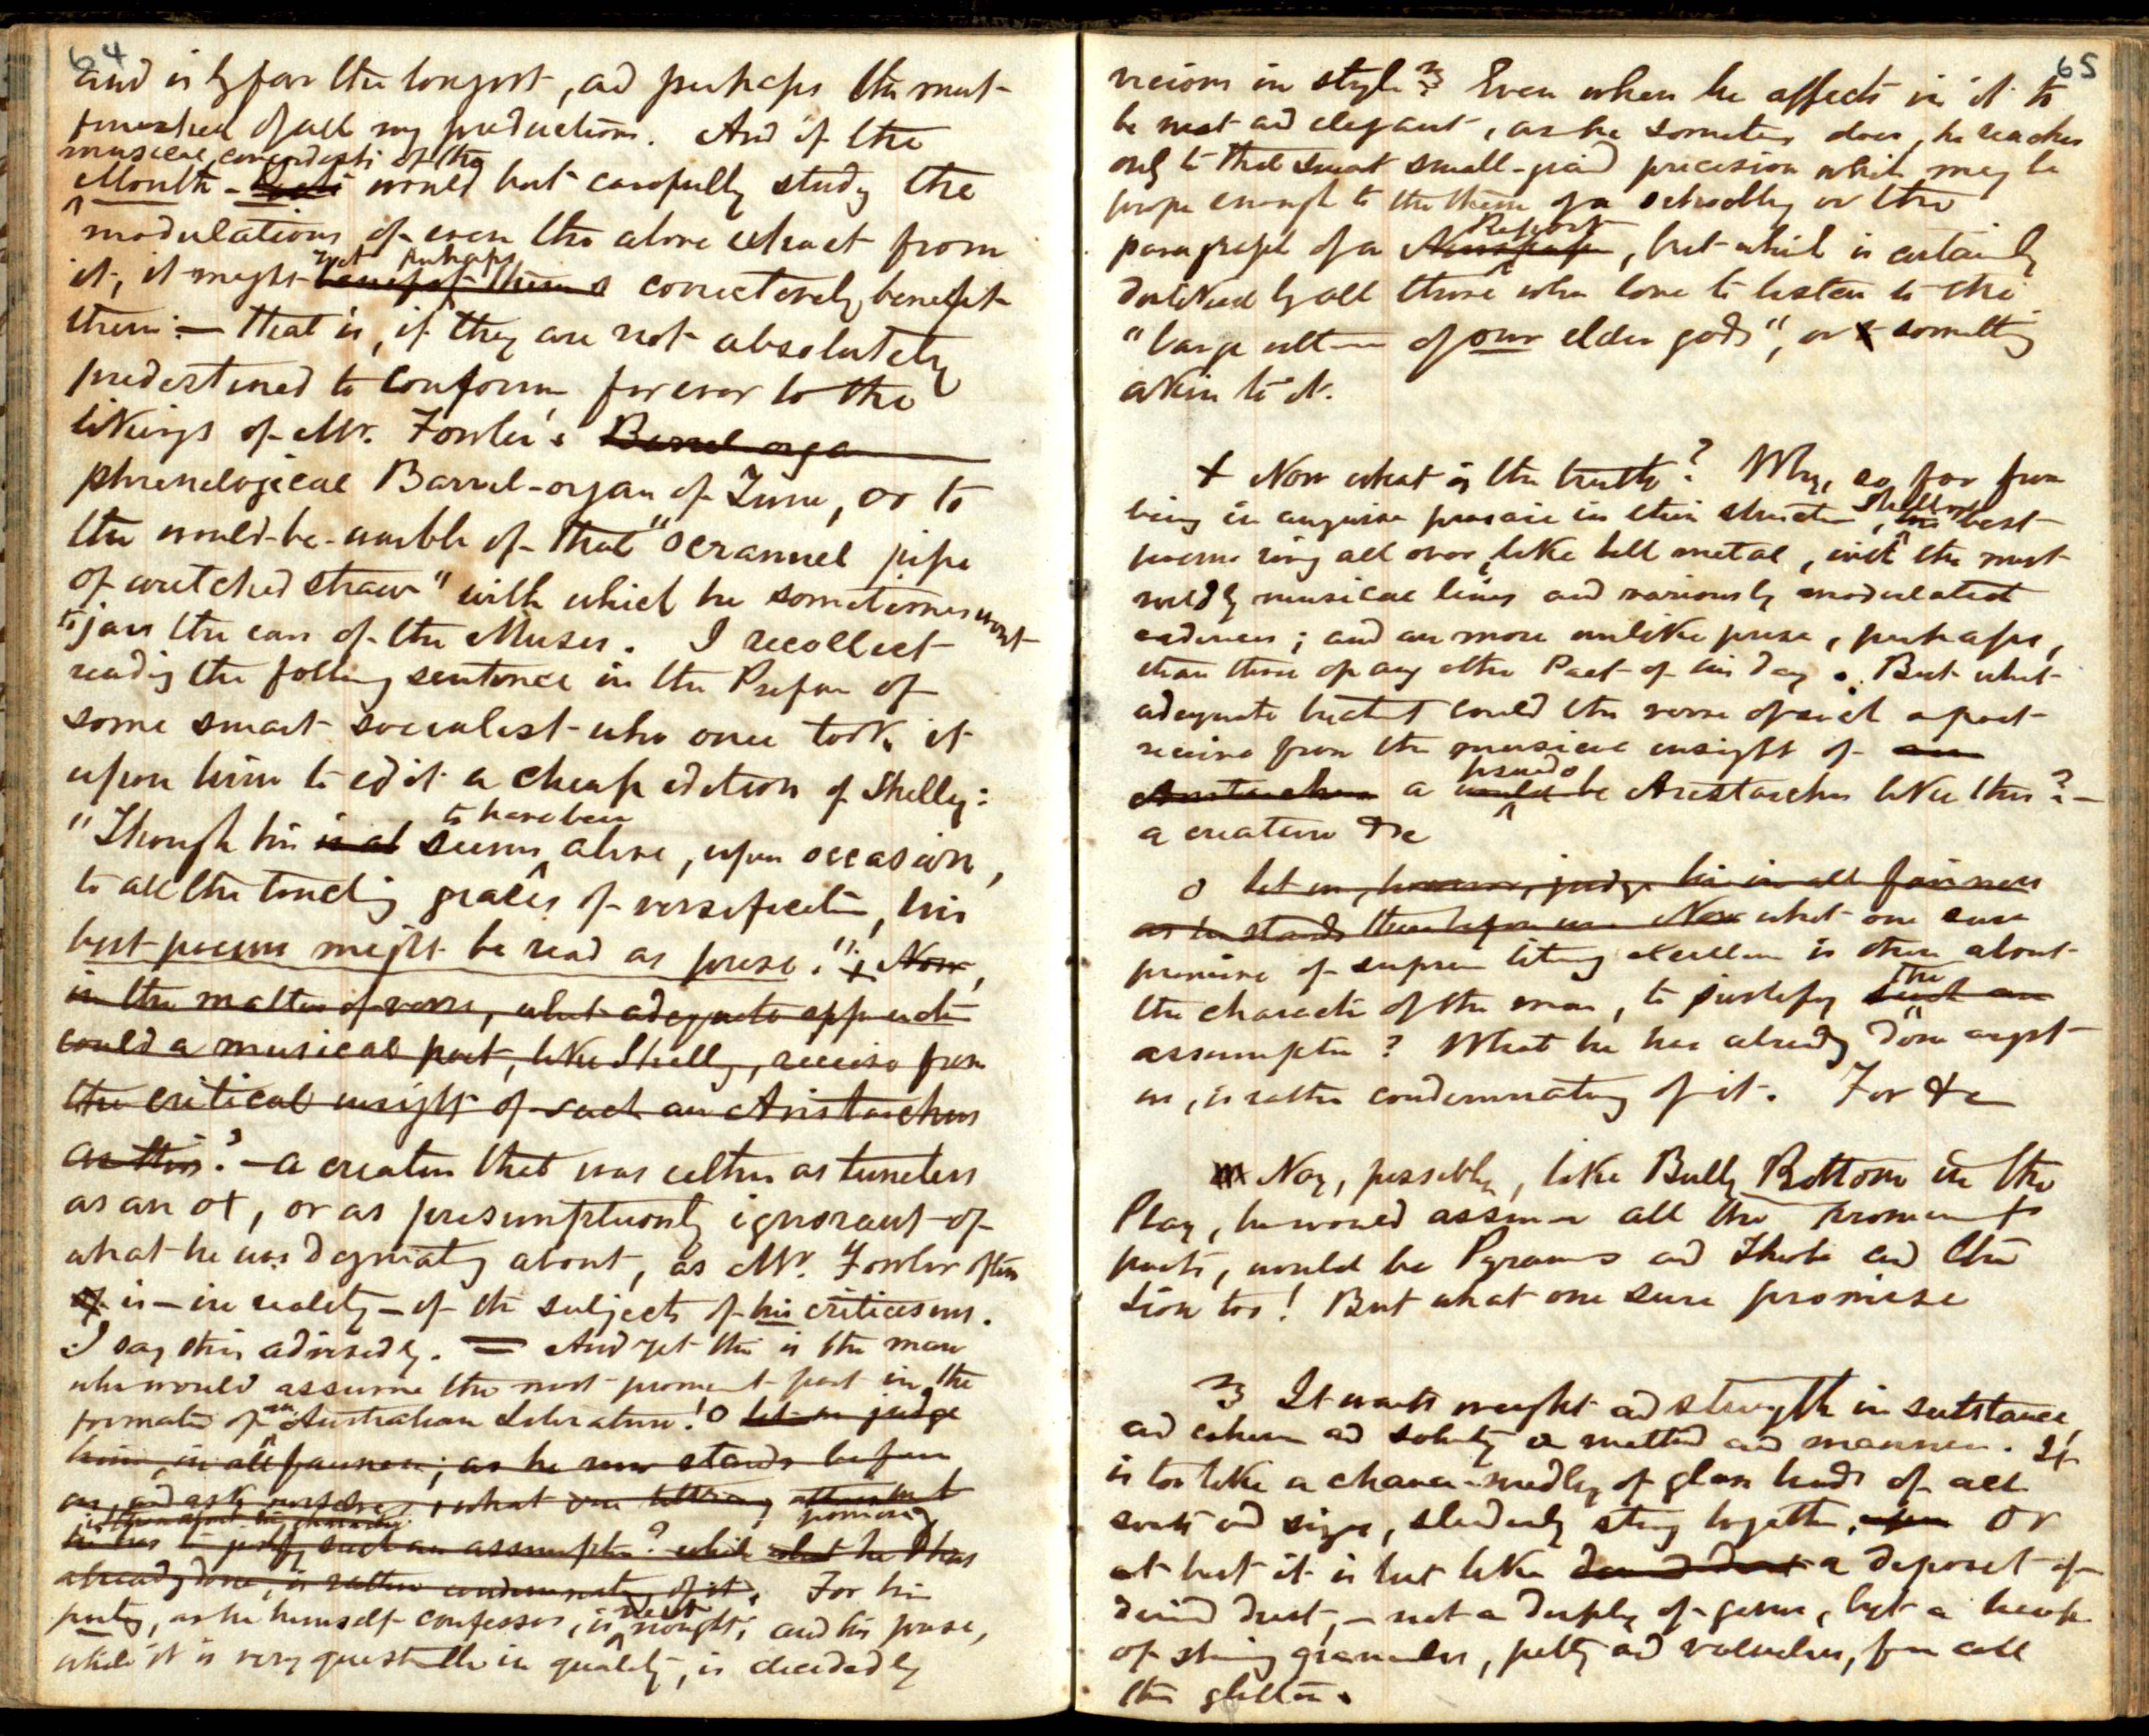 64
and is by far the longest, and perhaps the most
finished of all my productions. And if the
musical conductors of the
Month would but carefully study the
modulations of even the above extract from
it, it might yet perhaps benefit them correctively benefit
them: — that is, if they are not absolutely
predestined to conform forever to the
likings of Mr. Fowler's Barrel-orga
phrenological Barrel-organ of Tune, or to
the would-be-warble of that "scrannel pipe
of wretched straw" with which he sometimes wont
to jar the ears of the Muses. I recollect
reading the following sentence in the Preface of
some smart socialist who once took it
upon him to edit a cheap edition of Shelly:
to have been
"Though he is al seems alive, upon occasion,
to all the touching graces of versification, his
best poems might be read as prose." + Now,
in the matter of verse, what adequate appreciation
could a musical poet, like Shelly, receive from
the critical insight of such an Aristarchus
as this? — a creature that was either as tuneless
as an ox, or as presumptuously ignorant of
what he was dogmatizing about, as Mr. Fowler often
is – in reality – of the subjects of his criticisms.
I say this advisedly. = And yet this is the man
who would assume the most prominent part in the
formation of an Australian Literature! O let us judge
him, in all fairness, as he now stands before
us, and ask ourselves, what one literary
he has to justify such an assumption? while what he has
already done, is rather condemnatory of it. For his
poetry, as he himself confesses, is next nought; and his prose,
while it is very questionable in quality, is decidedly
65
vicious in style. 3 Even when he affects in it to
be neat and elegant, as he sometimes does, he reaches
only to that smart small-grained precision which may be
proper enough to the theme of a schoolboy or the
Report
paragraph of a Newspaper, but which is certainly
disliked by all those who love to listen to the
"large utterance of our elder gods", or something
akin to it.
+ Now what is the truth? Why, so far from
being in anywise prosaic in their structure, Shelly's best
poems ring all over, like bell metal, with the most
wildly musical lines and variously modulated
cadences; and are more unlike prose, perhaps,
than those of any other Poet of his day. But what
adequate treatment could the verse of such a poet
receive from the musical insight of an
pseudo
Aristarchus a would be Aristarchus like this? —
a creature &c
O let us, however, judge him in all fairness
as he stands there before us. Now what one sure
promise of supreme literary excellence is there about
the
the character of the man, to justify such an
assumption? What he has already done amongst
us, is rather condemnatory of it. For &c
Nay, possibly, like Bully Bottom in the
Play, he would assume all the prominent
parts, would be Pyramus and Thisbe and the
Lion too! But what one sure promise
3 It wants weight and strength in substance,
and cohesion and solidity in method and manner. It
is too like a chance-medley of glass beads of all
sorts and sizes, slenderly strung together, or
at best it is but like a deposit of
diamond dust, – not a display of gems, but a heap
of shining granules, petty and valueless, for all
their glitter.